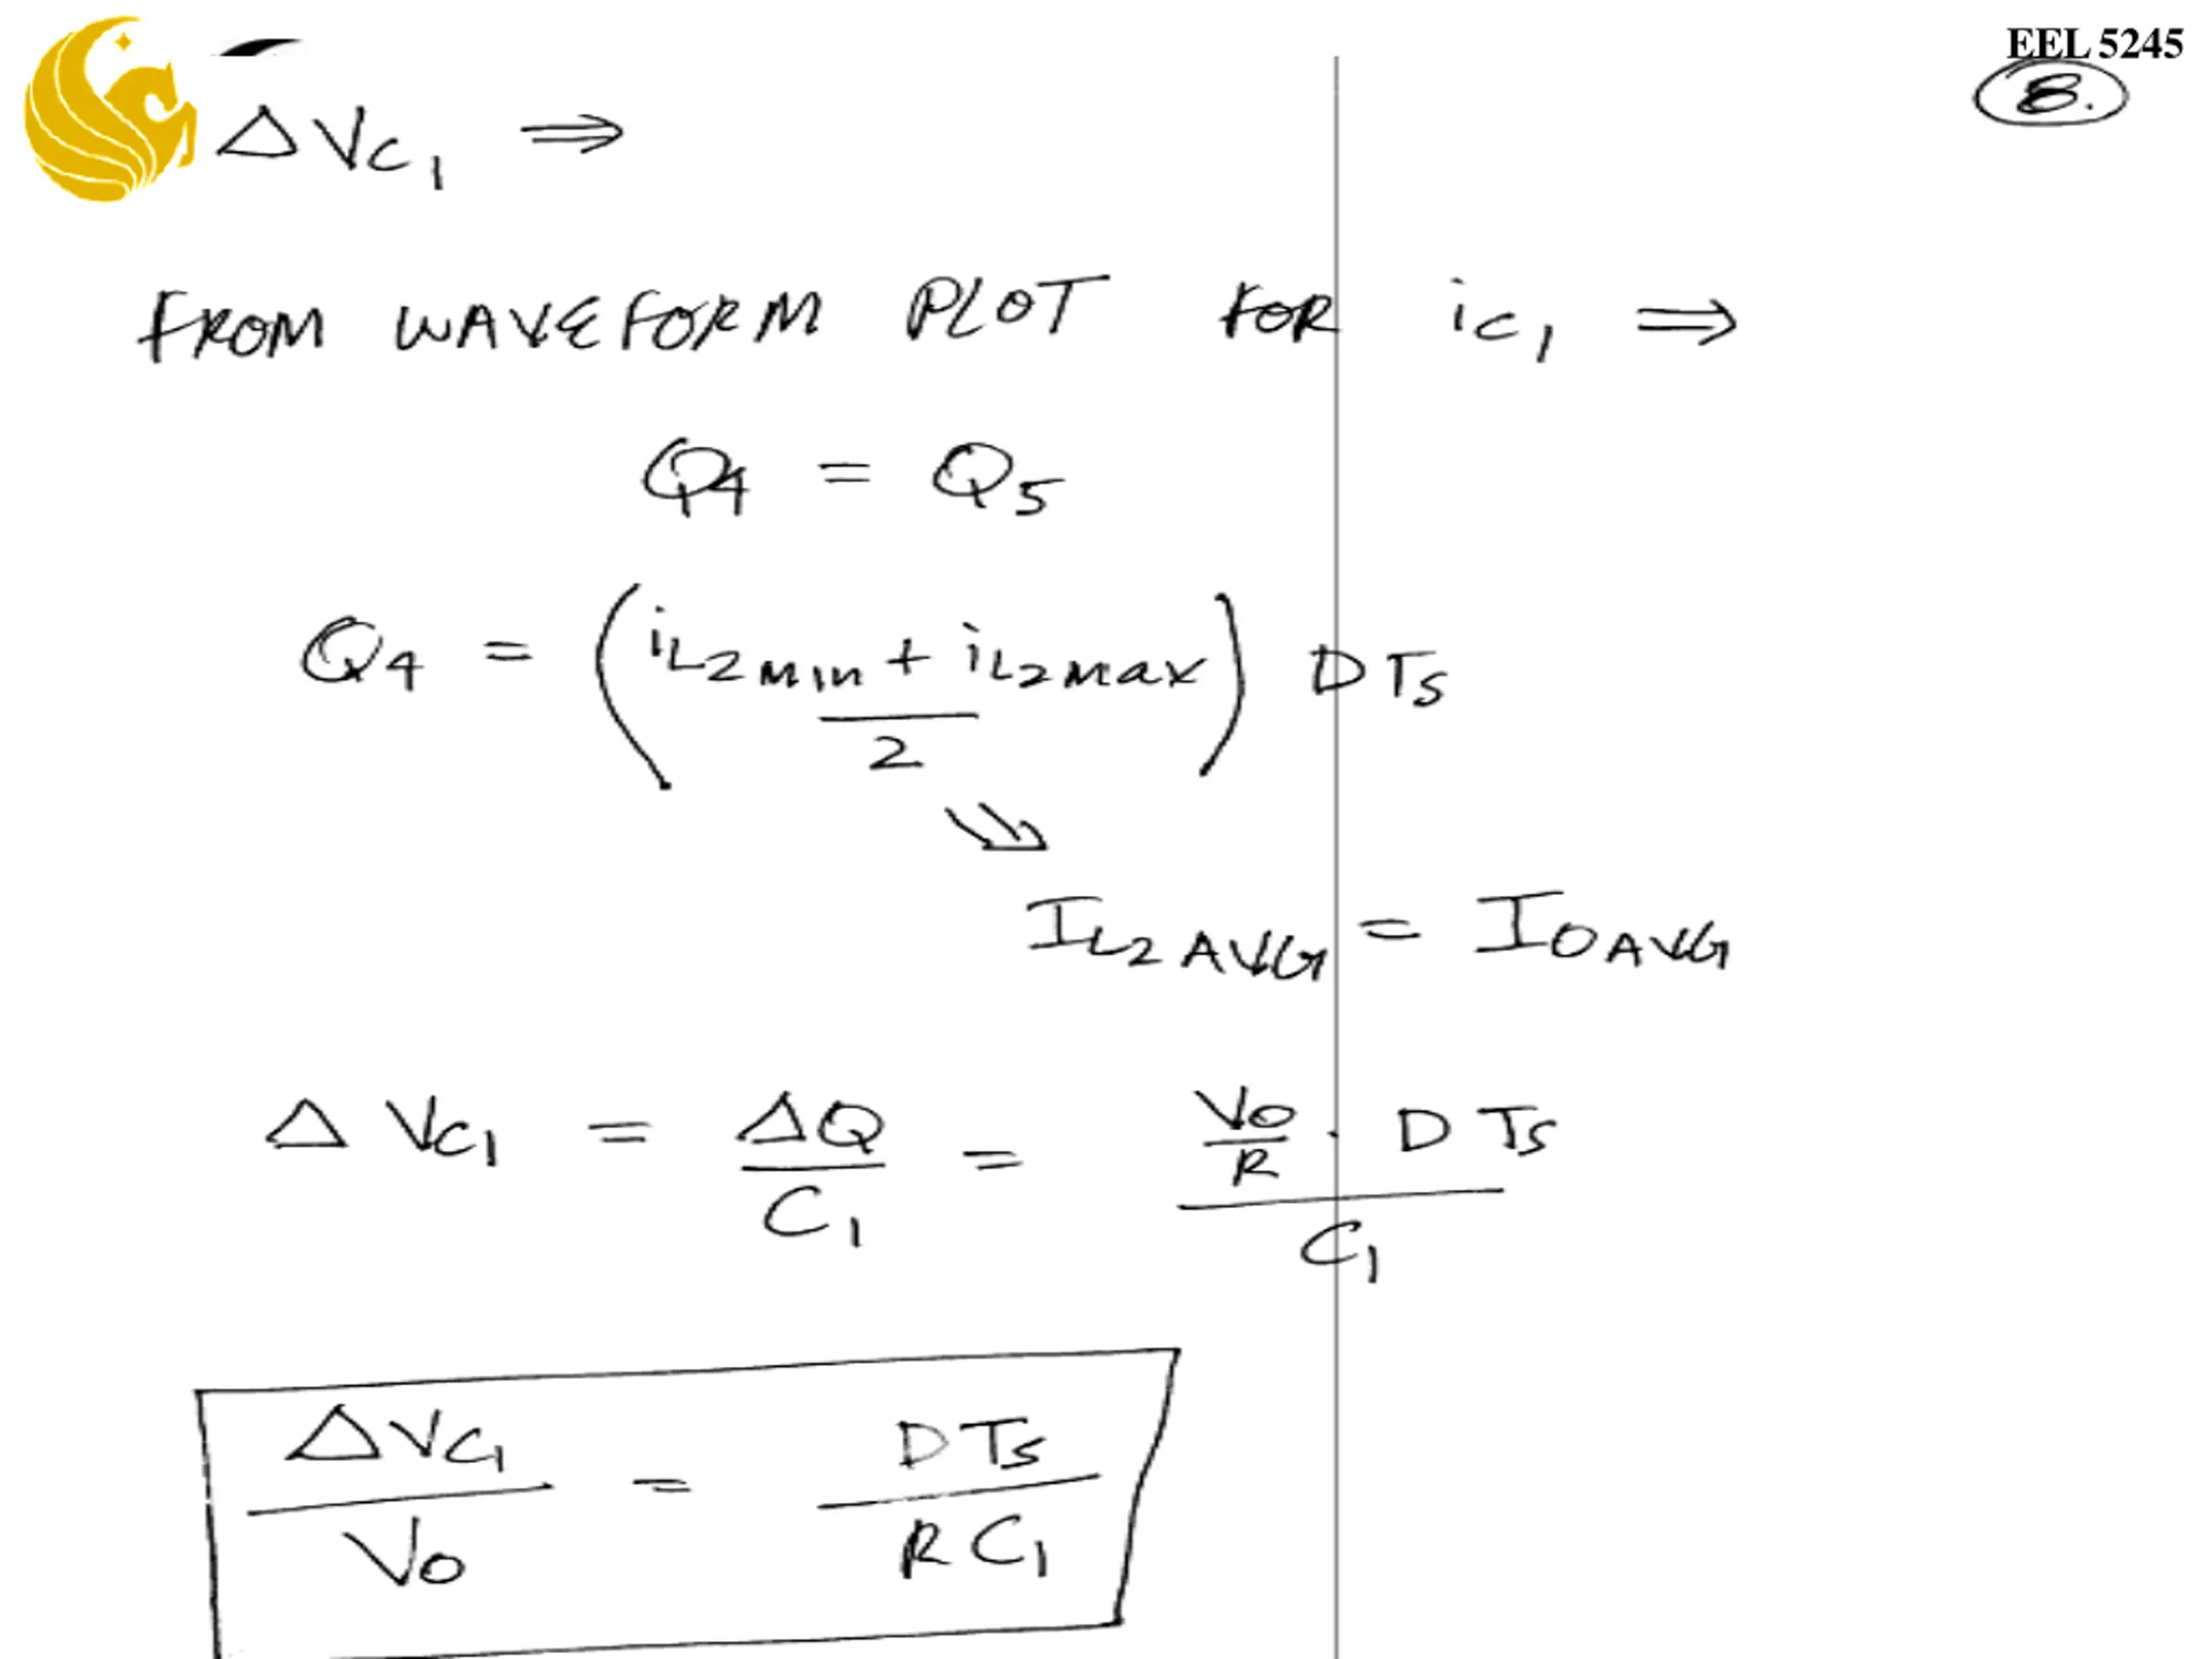 EEL 5245
8.
ΔVC1 ⇒
FROM WAVEFORM PLOT FOR iC1 ⇒
Q4 = Q5
Q4 = (iL2min + iL2max / 2) DTs
⇘
IL2AVG = IOAVG
ΔVC1 = ΔQ / C1 = Vo/R · DTs / C1
ΔVC1 / Vo = DTs / RC1